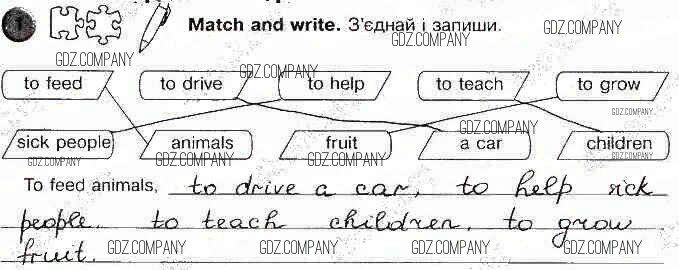 1 Match and write. З'єднай і запиши.
GDZ.COMPANY GDZ.COMPANY
GDZ.COMPANY
to feed to drive to help to teach to grow
GDZ.COMPANY GDZ.COMPANY GDZ.COMPANY
GDZ.COMPANY
GDZ.COMPANY
sick people animals fruit a car children
GDZ.COMPANY GDZ.COMPANY GDZ.COMPANY GDZ.COMPANY
To feed animals, to drive a car, to help sick
people. to teach children, to grow
fruit.
GDZ.COMPANY GDZ.COMPANY GDZ.COMPANY GDZ.COMPANY